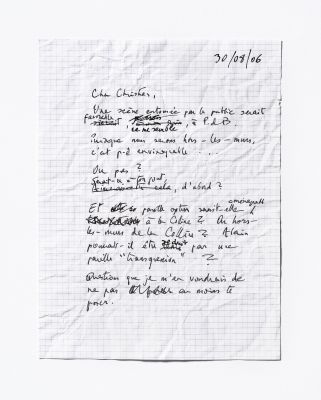 30/08/06
Cher Christian,
Une scène entourée par le public serait
formelle
ce me semble, à P.d.B.
Puisque nous serons hors-les-murs,
c'est p-ê envisageable ....
Ou pas ?
faut-il, d'abord ?
Et pareille option serait-elle aménageable
à la Colline ? Ou hors-
les-murs de la Colline ? Alain
pourrait-il être par une
pareille "transgression" ?
Question que je m'en voudrais de
ne pas au moins te
poser.